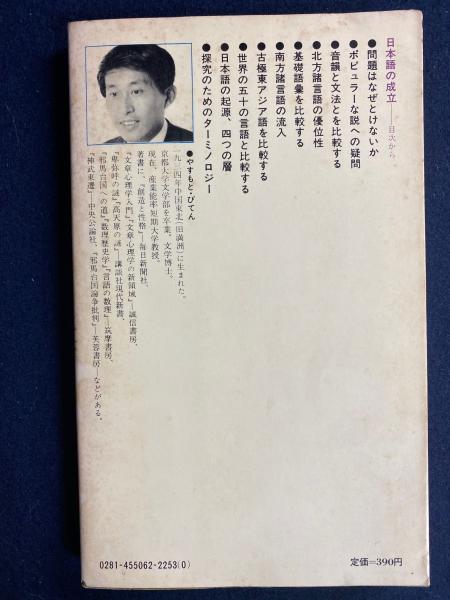 日本語の成立――目次から。
●問題はなぜとけないか
●ポピュラーな説への疑問
●音韻と文法とを比較する
●北方諸言語の優位性
●基礎語彙を比較する
●南方諸言語の流入
●古極東アジア語を比較する
●世界の五十の言語と比較する
●日本語の起源、四つの層
●探究のためのターミノロジー
●やすもと・びてん
一九三四年中国東北(旧満洲)に生まれた。
京都大学文学部を卒業。文学博士。
現在、産業能率短期大学教授。
著書に、『創造と性格』―毎日新聞社、
『文章心理学入門』『文章心理学の新領域』―誠信書房、
『卑弥呼の謎』『高天原の謎』―講談社現代新書、
『邪馬台国への道』『数理歴史学』『言語の数理』―筑摩書房、
『神武東遷』―中央公論社、『邪馬台国論争批判』―芙蓉書房―などがある。
0281-455062-2253(0)
定価=390円